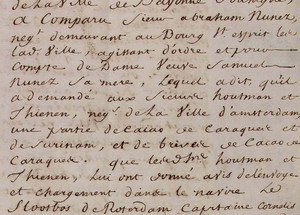 de La Ville de Bayonne soussigné,
a Comparu Sieur abraham Nunez,
neg.t demeurant au Bourg St. esprit les
lad. Ville, agissant d'ordre et pour
Compte de Dame Veuve Samuel
Nunez Sa mere, Lequel a dit, qu'il
a demandé aux Sieurs houtman et
Thienen, neg.ts de La Ville d'amsterdam
une partie de Cacao de Caraques et
de Surinam, et de briser de Cacao
Caraques. que lesd. Srs. houtman et
Thienen, Lui ont donné avis de L'envoy
et chargement dans le navire Le
de Roterdam Capitaine Cornelis